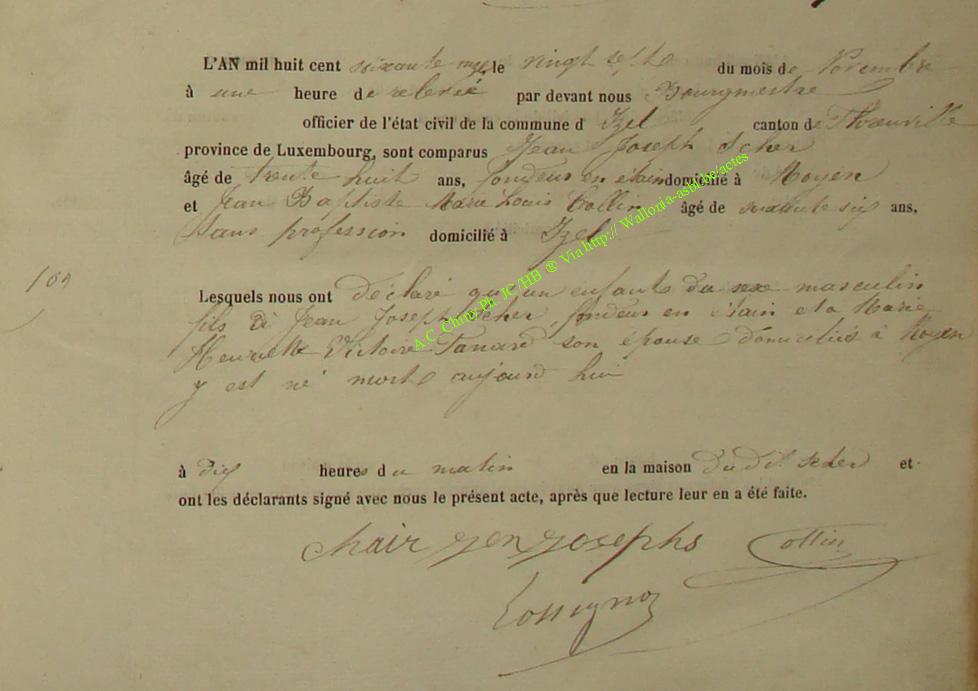 L'AN mil huit cent soixante neuf, le vingt sept du mois de Novembre
à une heure de relevée par devant nous Bourgmestre
officier de l'état civil de la commune d Izel canton de Florenville
province de Luxembourg, sont comparus Jean Joseph Scher
âgé de trente huit ans, fondeur en étain domicilié à Moyen
et Jean Baptiste Marie Louis Collin âgé de soixante six ans,
sans profession domicilié à Izel
Lesquels nous ont déclaré qu'un enfant du sexe masculin
fils de Jean Joseph Scher, fondeur en étain et de Marie
Henriette Victoire Tanard son épouse domiciliés à Moyen
y est né mort aujourd hui
à dix heures du matin en la maison dudit Scher et
ont les déclarants signé avec nous le présent acte, après que lecture leur en a été faite.
chair jen josephs Collin
Rossignon
A.C. Chiny Ph JC/HB ® Via http:// Wallonia-asbl.be/actes